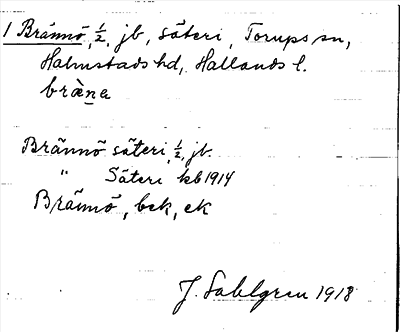 1 Brännö, 1/2, jb, säteri, Torups sn,
Halmstads hd, Hallands l.
bràna
Brännö säteri, 1/2, jb.
" Säteri kb 1914
Brännö, bek, ek
J. Sahlgren 1918